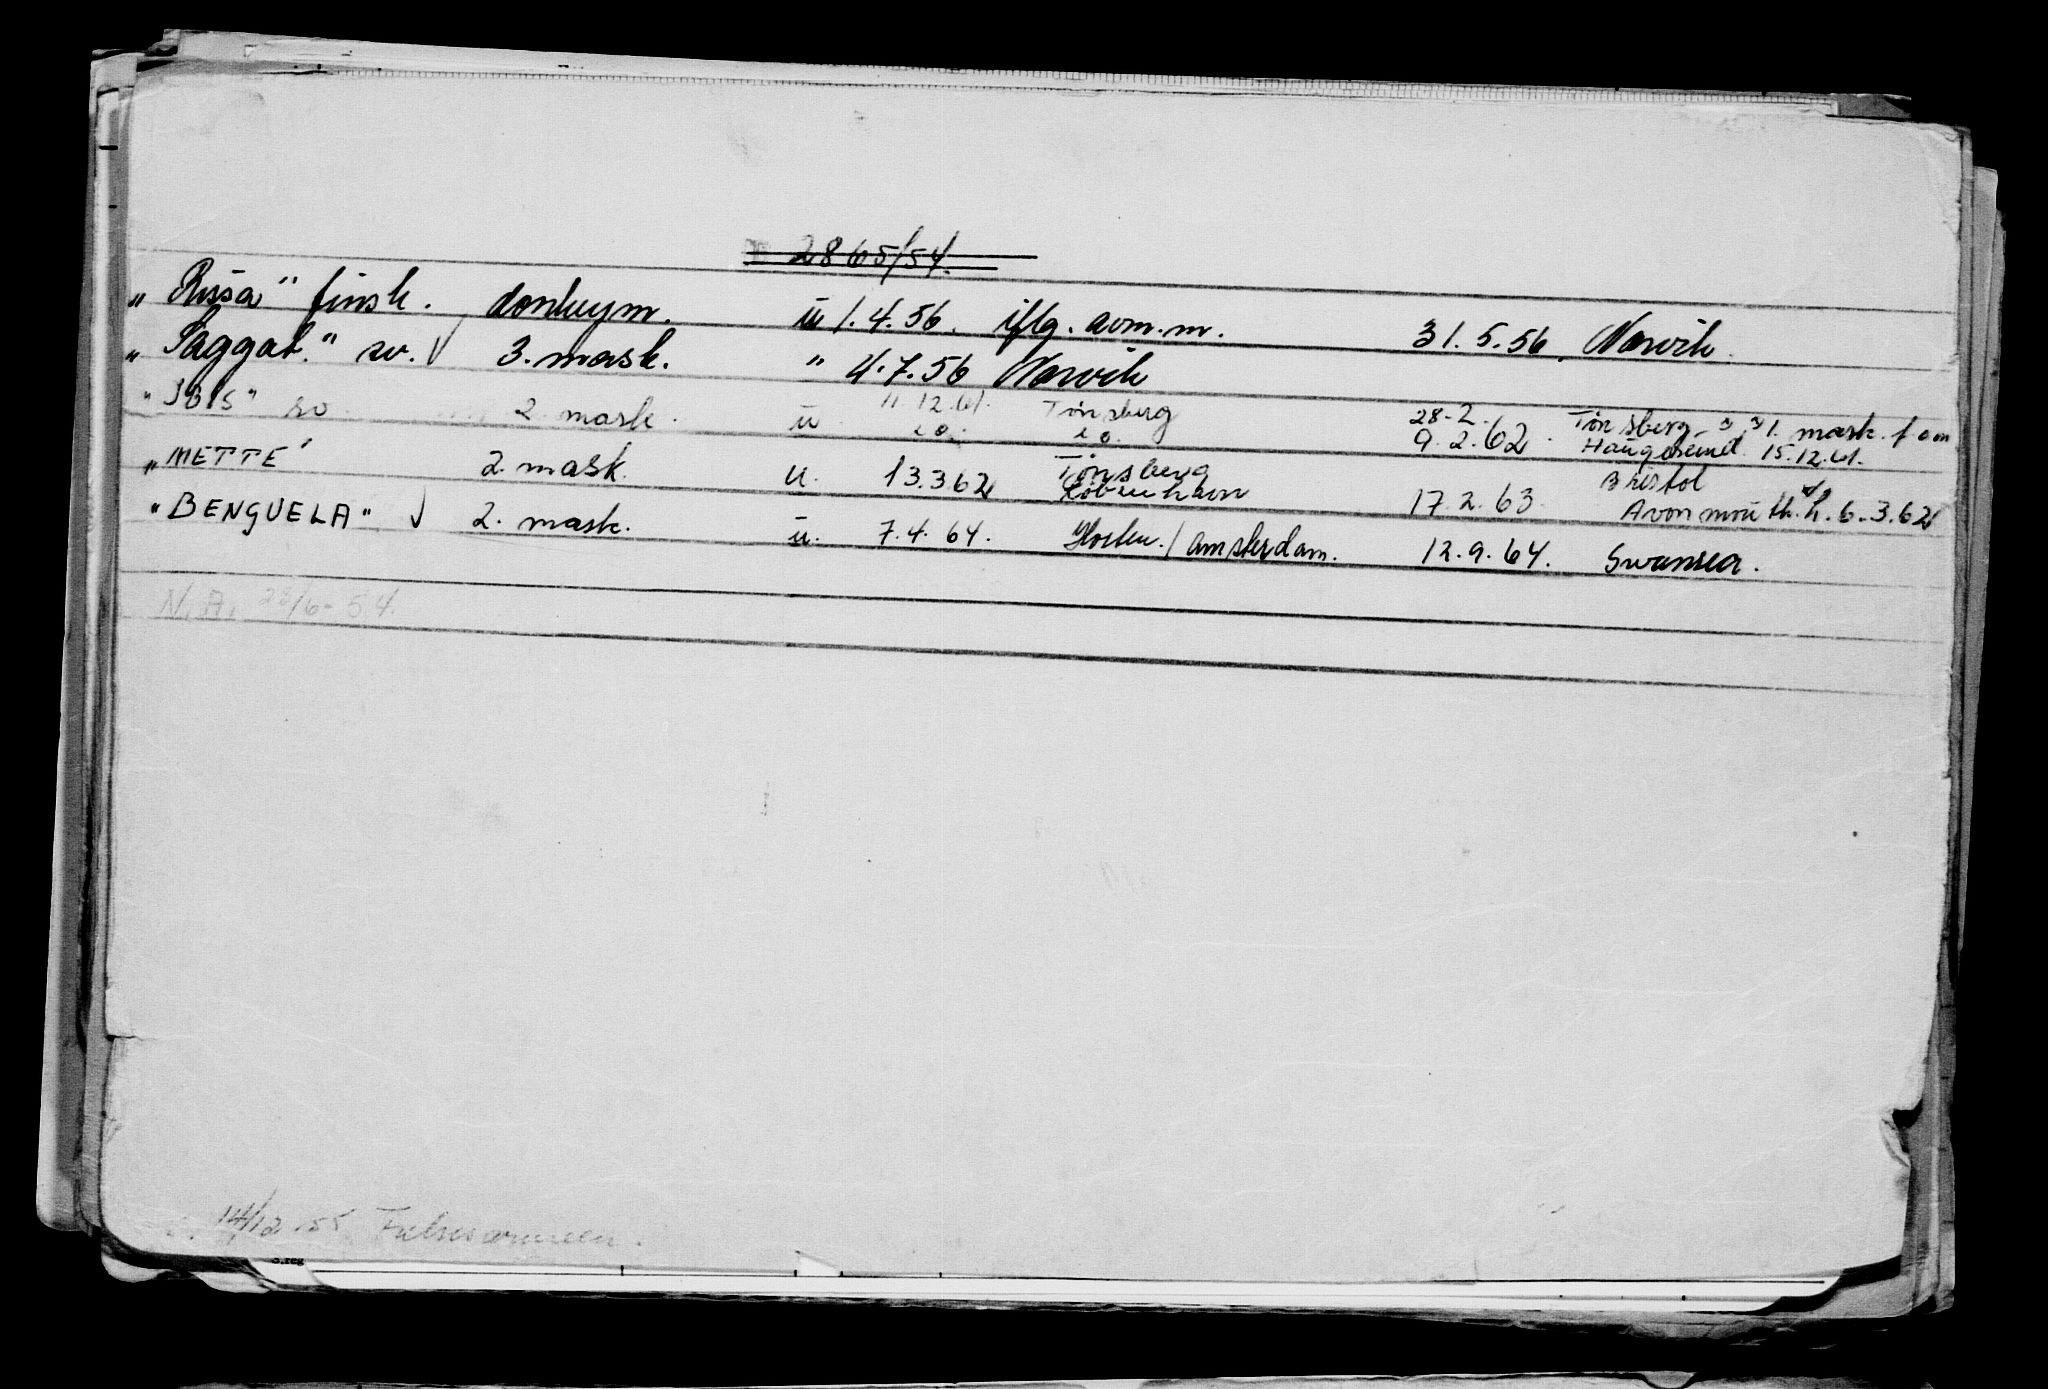 2865/54.
"Rissa" finsk. donkeym. u 1.4.56. iflg. avm. m. 31.5.56, Narvik.
"Saggat." sv. √ 3. mask. " 4.7.56 Narvik
"IBIS" so 2. mask. u 11.12.61. Tønsberg 28.2. Tønsberg 1. mask. f om
9.2.62. Haugesund. 15.12.61.
"METTE" 2. mask. u. 13.3.62 Tønsberg Bristol
København 17.2.63. Avonmouth. h. 6.3.62
"BENGUELA" √ 2. mask. u. 7.4.64. Horten. / Amsterdam. 12.9.64. Swansea.
N.A. 28/6-54.
14/12-55 Frelsesarmeen.
3.reg